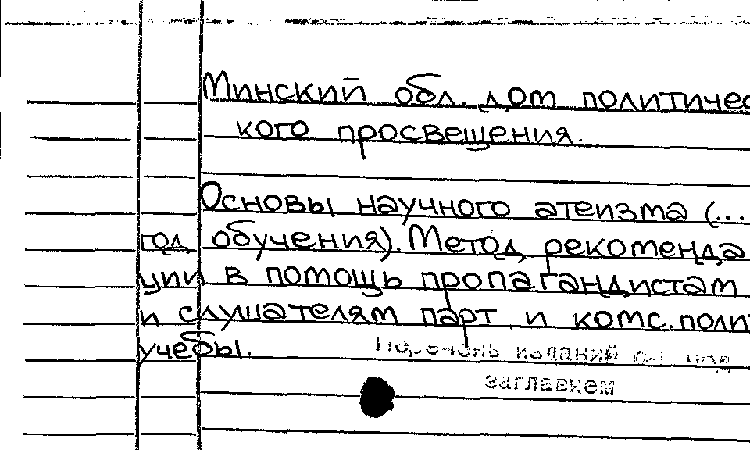 Минский обл. дом политичес
кого просвещения.
Основы научного атеизма (...
год обучения). Метод. рекоменда
ции в помощь пропагандистам
и слушателям парт. и комс. полит
учебы.
Перечень изданий см. под
заглавием